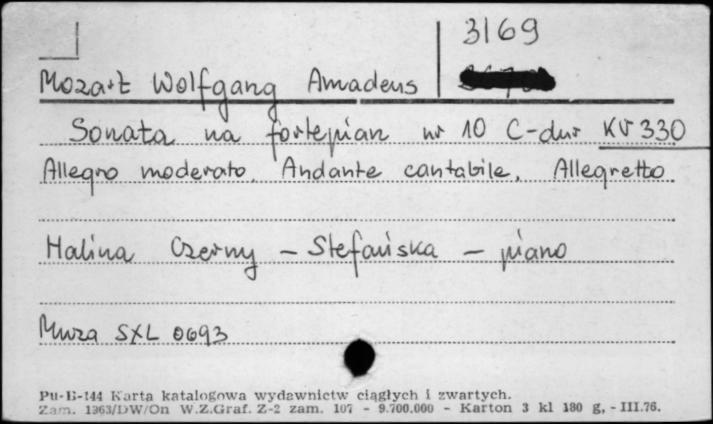 3169
Mozart Wolfgang Amadeus
Sonata na fortepian nr 10 C-dur KV 330
Allegro moderato. Andante cantabile. Allegretto
Halina Czerny - Stefańska - piano
Muza SXL 0693
Pu-B-144 Karta katalogowa wydawnictw ciągłych i zwartych.
Zam. 1363/DW/On W.Z.Graf. Z-2 zam. 107 - 9.700.000 - Karton 3 kl 180 g, - III.76.